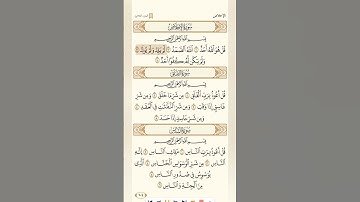 سُورَةُ الإِخْلَاصِ
بِسْمِ اللَّهِ الرَّحْمَٰنِ الرَّحِيمِ
قُلْ هُوَ اللَّهُ أَحَدٌ ۝١ اللَّهُ الصَّمَدُ ۝٢ لَمْ يَلِدْ وَلَمْ يُولَدْ ۝٣
وَلَمْ يَكُن لَّهُ كُفُوًا أَحَدٌ ۝٤
سُورَةُ الفَلَقِ
بِسْمِ اللَّهِ الرَّحْمَٰنِ الرَّحِيمِ
قُلْ أَعُوذُ بِرَبِّ الْفَلَقِ ۝١ مِن شَرِّ مَا خَلَقَ ۝٢ وَمِن شَرِّ
غَاسِقٍ إِذَا وَقَبَ ۝٣ وَمِن شَرِّ النَّفَّاثَاتِ فِي الْعُقَدِ ۝٤
وَمِن شَرِّ حَاسِدٍ إِذَا حَسَدَ ۝٥
سُورَةُ النَّاسِ
بِسْمِ اللَّهِ الرَّحْمَٰنِ الرَّحِيمِ
قُلْ أَعُوذُ بِرَبِّ النَّاسِ ۝١ مَلِكِ النَّاسِ ۝٢ إِلَٰهِ
النَّاسِ ۝٣ مِن شَرِّ الْوَسْوَاسِ الْخَنَّاسِ ۝٤ الَّذِي
يُوَسْوِسُ فِي صُدُورِ النَّاسِ ۝٥
مِنَ الْجِنَّةِ وَالنَّاسِ ۝٦